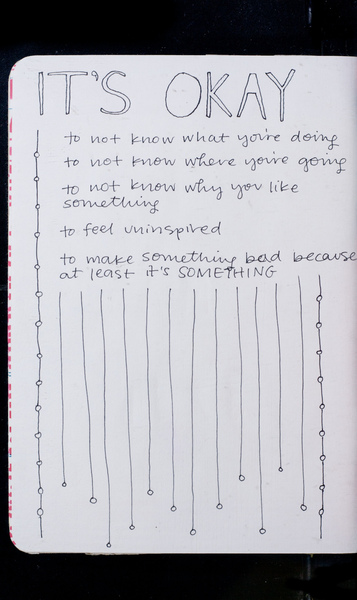 IT'S OKAY
to not know what you're doing
to not know where you're going
to not know why you like
something
to feel uninspired
to make something bad because
at least it's SOMETHING